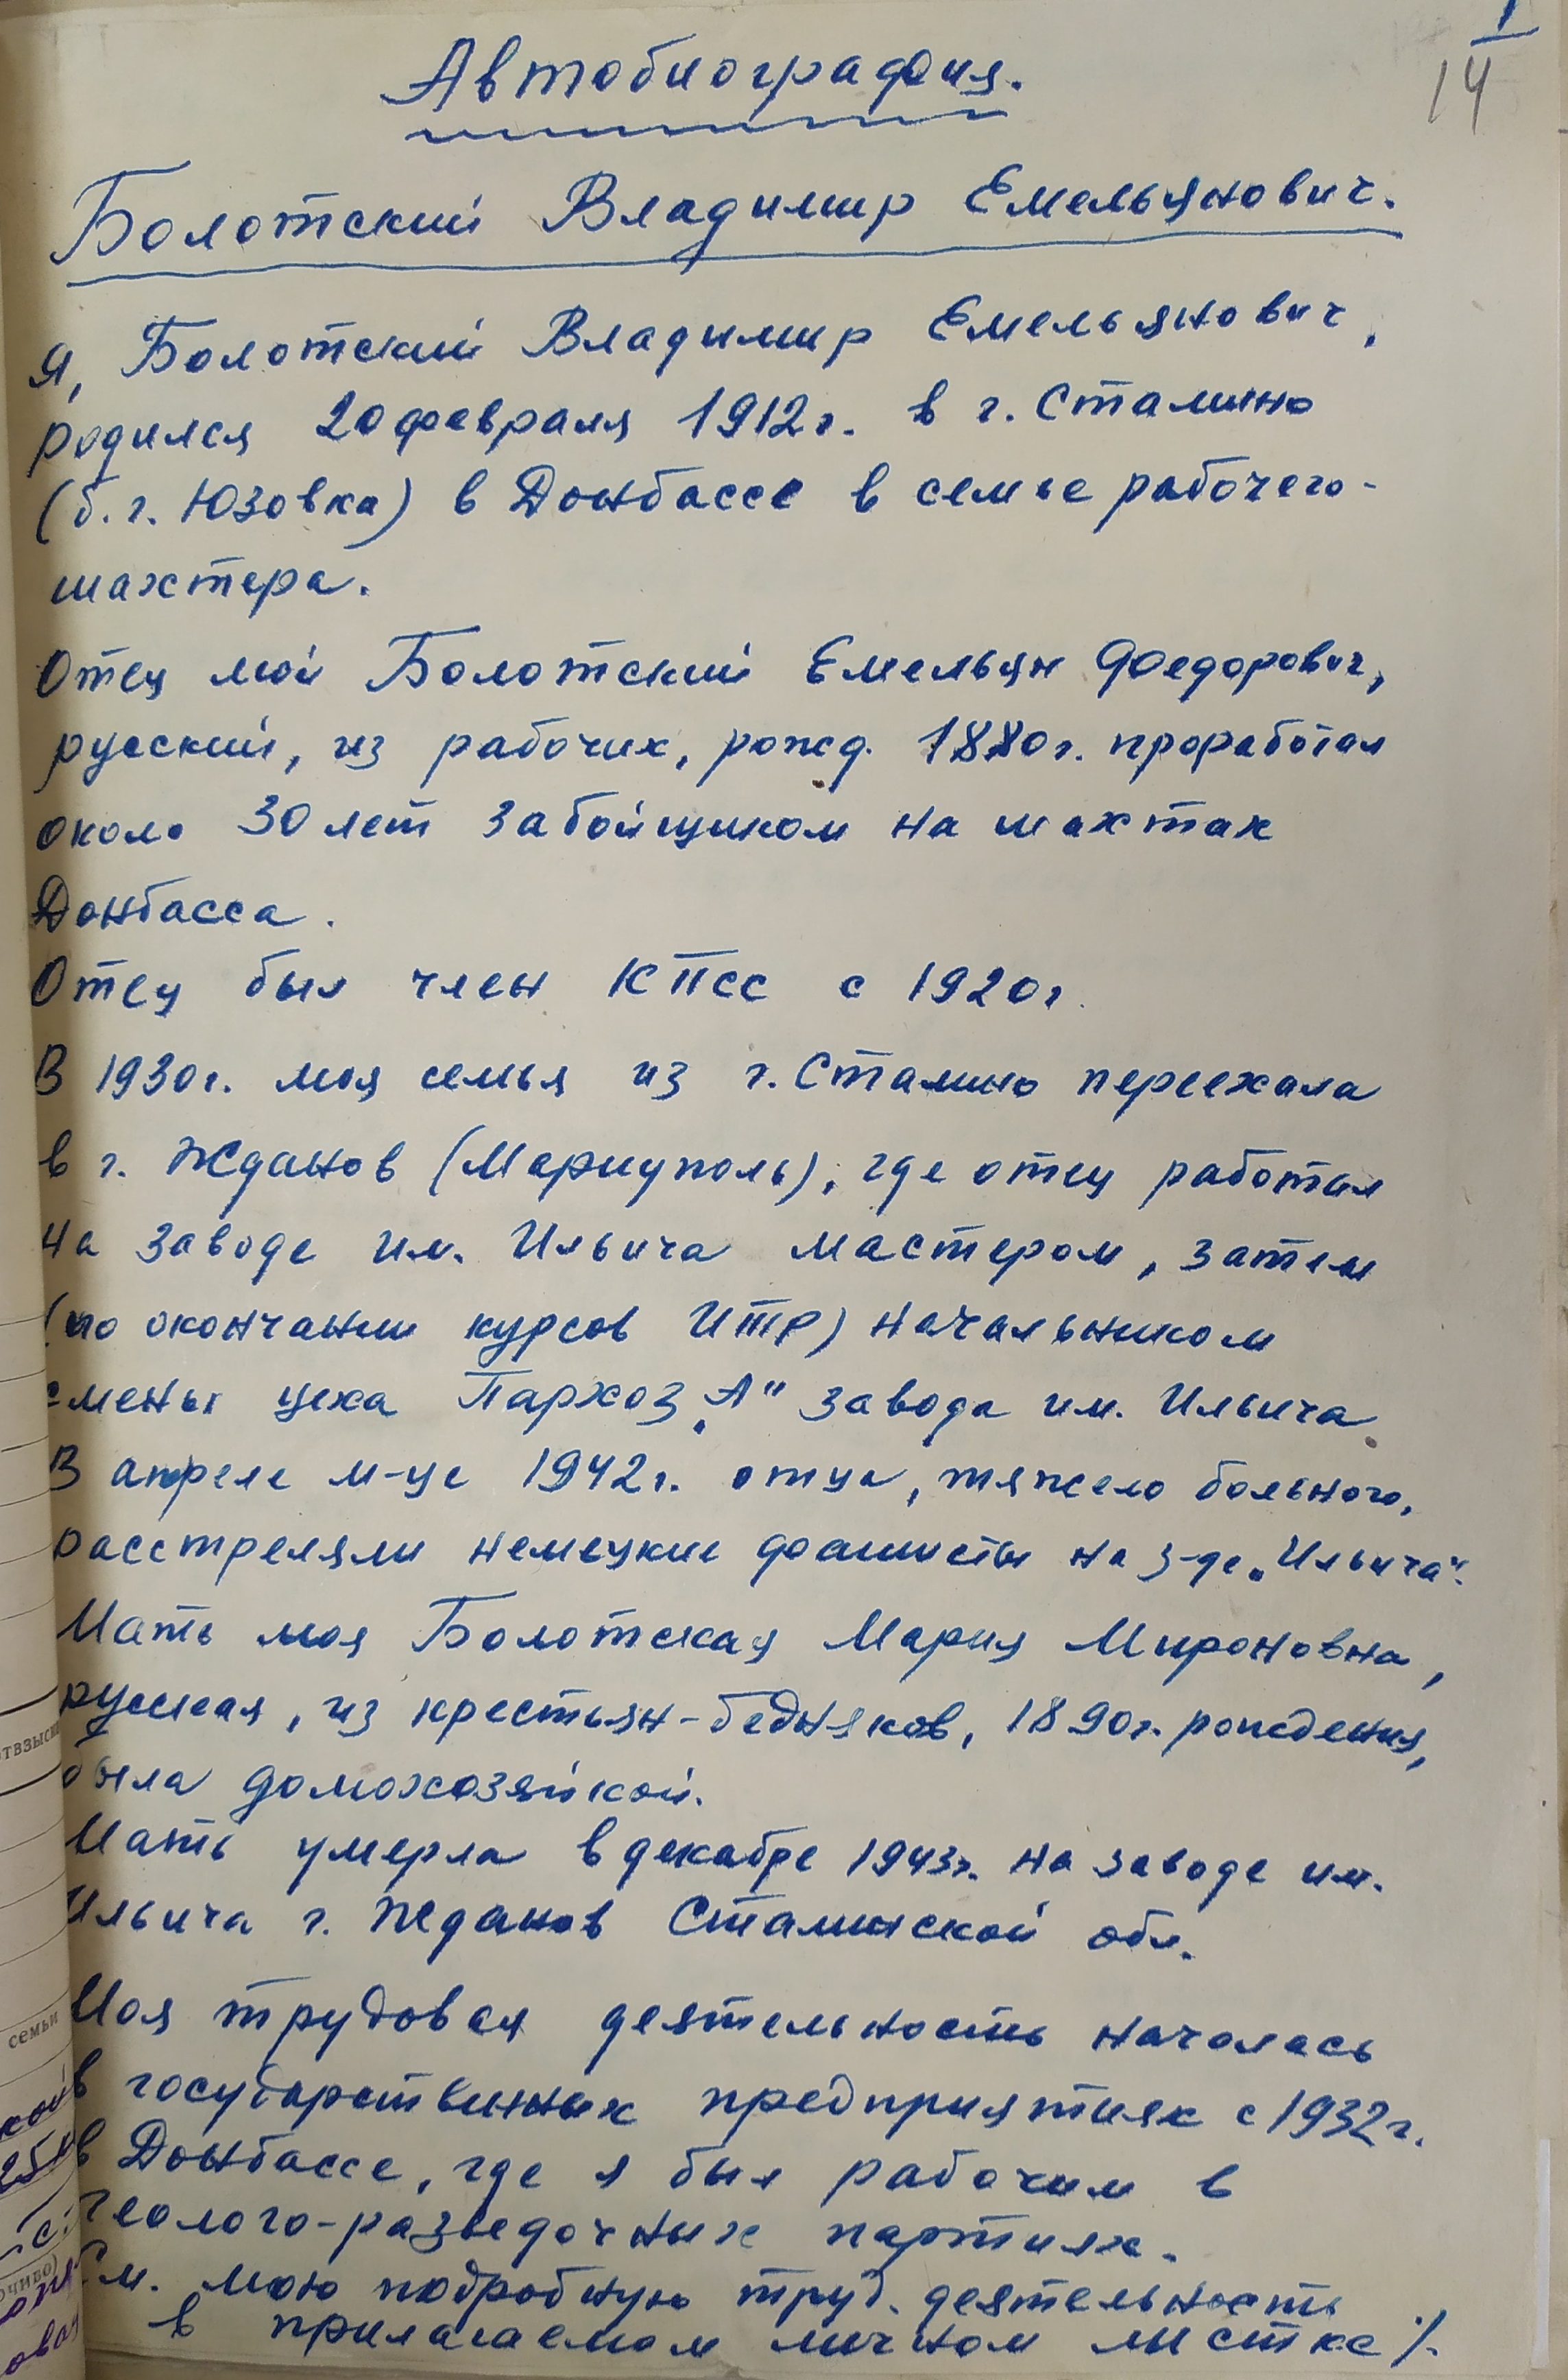 1
14
Автобиография.
Болотский Владимир Емельянович.
Я, Болотский Владимир Емельянович,
родился 20 февраля 1912г. в г. Сталино
(б. г. Юзовка) в Донбассе в семье рабочего-
шахтера.
Отец мой Болотский Емельян Федорович,
русский, из рабочих, рожд. 1880г. проработал
около 30 лет забойщиком на шахтах
Донбасса.
Отец был член КПСС с 1920г.
В 1930г. моя семья из г. Сталино переехала
в г. Жданов (Мариуполь), где отец работал
на заводе им. Ильича мастером, затем
(по окончании курсов ИТР) начальником
смены цеха Пархоз „А" завода им. Ильича.
В апреле м-це 1942г. отца, тяжело больного,
расстреляли немецкие фашисты на з-де „Ильича".
Мать моя Болотская Мария Мироновна,
русская, из крестьян-бедняков, 1890г. рождения,
была домохозяйкой.
Мать умерла в декабре 1943г. на заводе им.
Ильича г. Жданов Сталинской обл.
Моя трудовая деятельность началась
в государственных предприятиях с 1932г.
в Донбассе, где я был рабочим в
геолого-разведочных партиях.
См. мою подробную труд. деятельность
в прилагаемом личном листке ./.
семьи